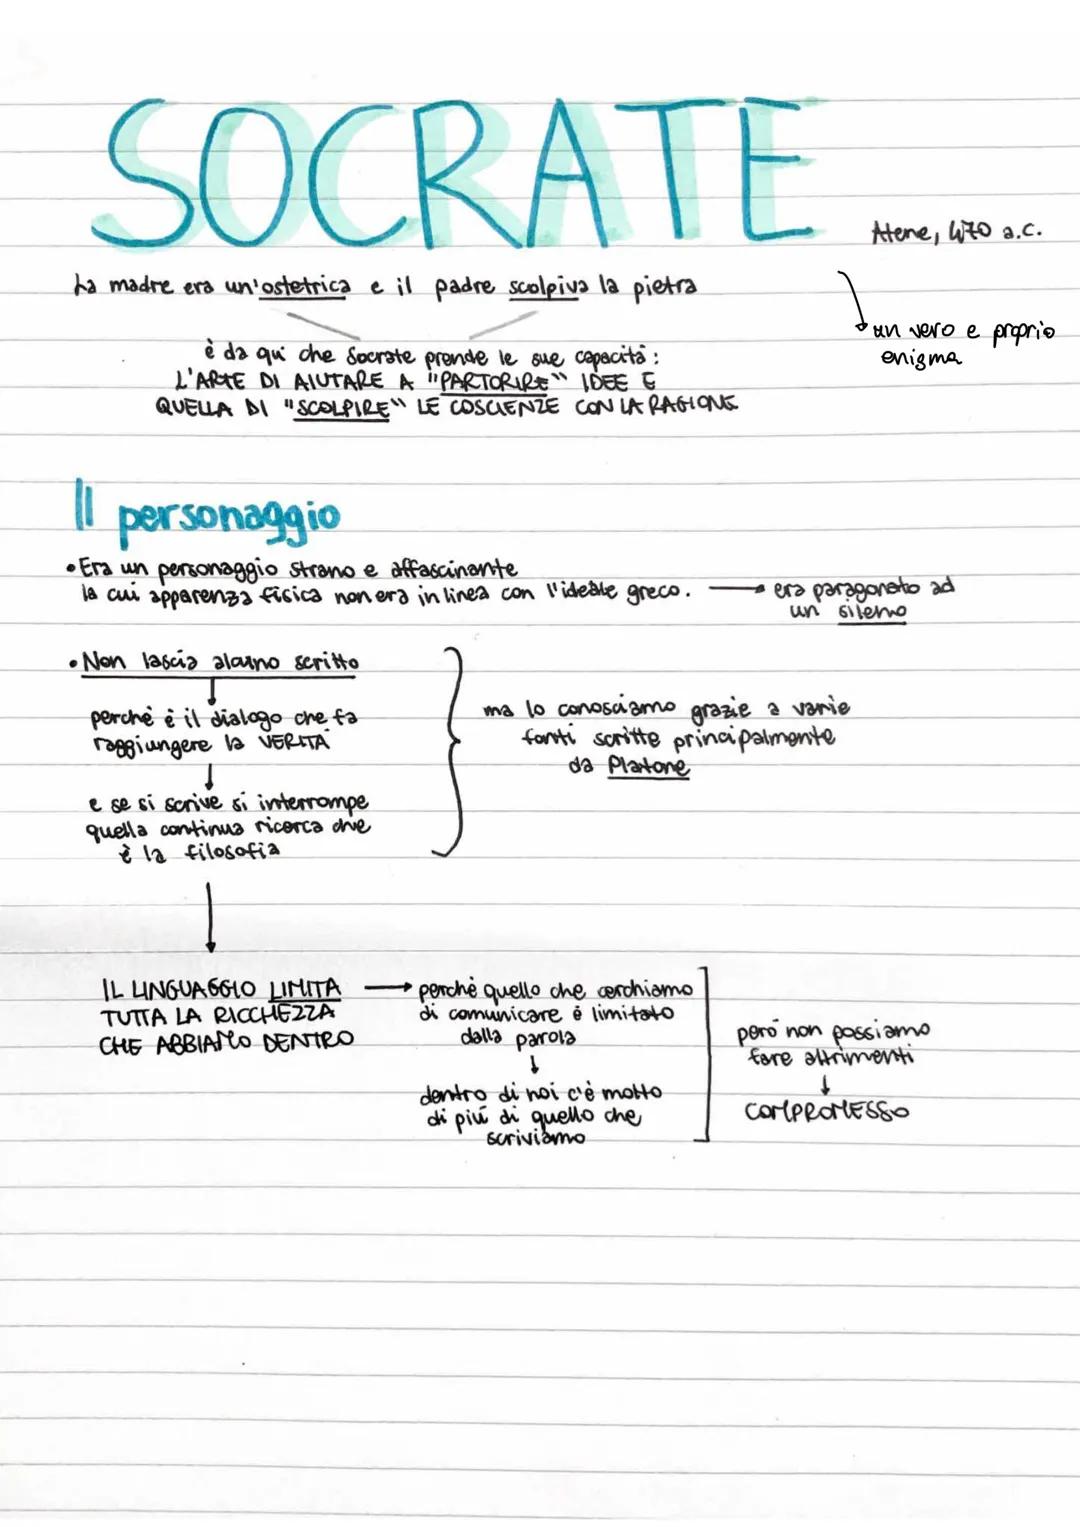 SOCRATE
Atene, 470 a.C.
La madre era un'ostetrica e il padre scolpiva la pietra
un vero e proprio
enigma
è da qui che Socrate prende le sue capacità:
L'ARTE DI AIUTARE A "PARTORIRE" IDEE E
QUELLA DI "SCOLPIRE" LE COSCIENZE CON LA RAGIONE
Il personaggio
• Era un personaggio strano e affascinante
la cui apparenza fisica non era in linea con l'ideale greco.
era paragonato ad
un sileno
• Non lascia alcuno scritto
perché è il dialogo che fa
raggiungere la VERITÀ
e se si scrive si interrompe
quella continua ricerca che
è la filosofia
ma lo conosciamo grazie a varie
fonti scritte principalmente
da Platone
IL LINGUAGGIO LIMITA
TUTTA LA RICCHEZZA
CHE ABBIAMO DENTRO
perché quello che cerchiamo
di comunicare è limitato
dalla parola
dentro di noi c'è molto
di più di quello che
scriviamo
però non possiamo
fare altrimenti
COMPROMESSO